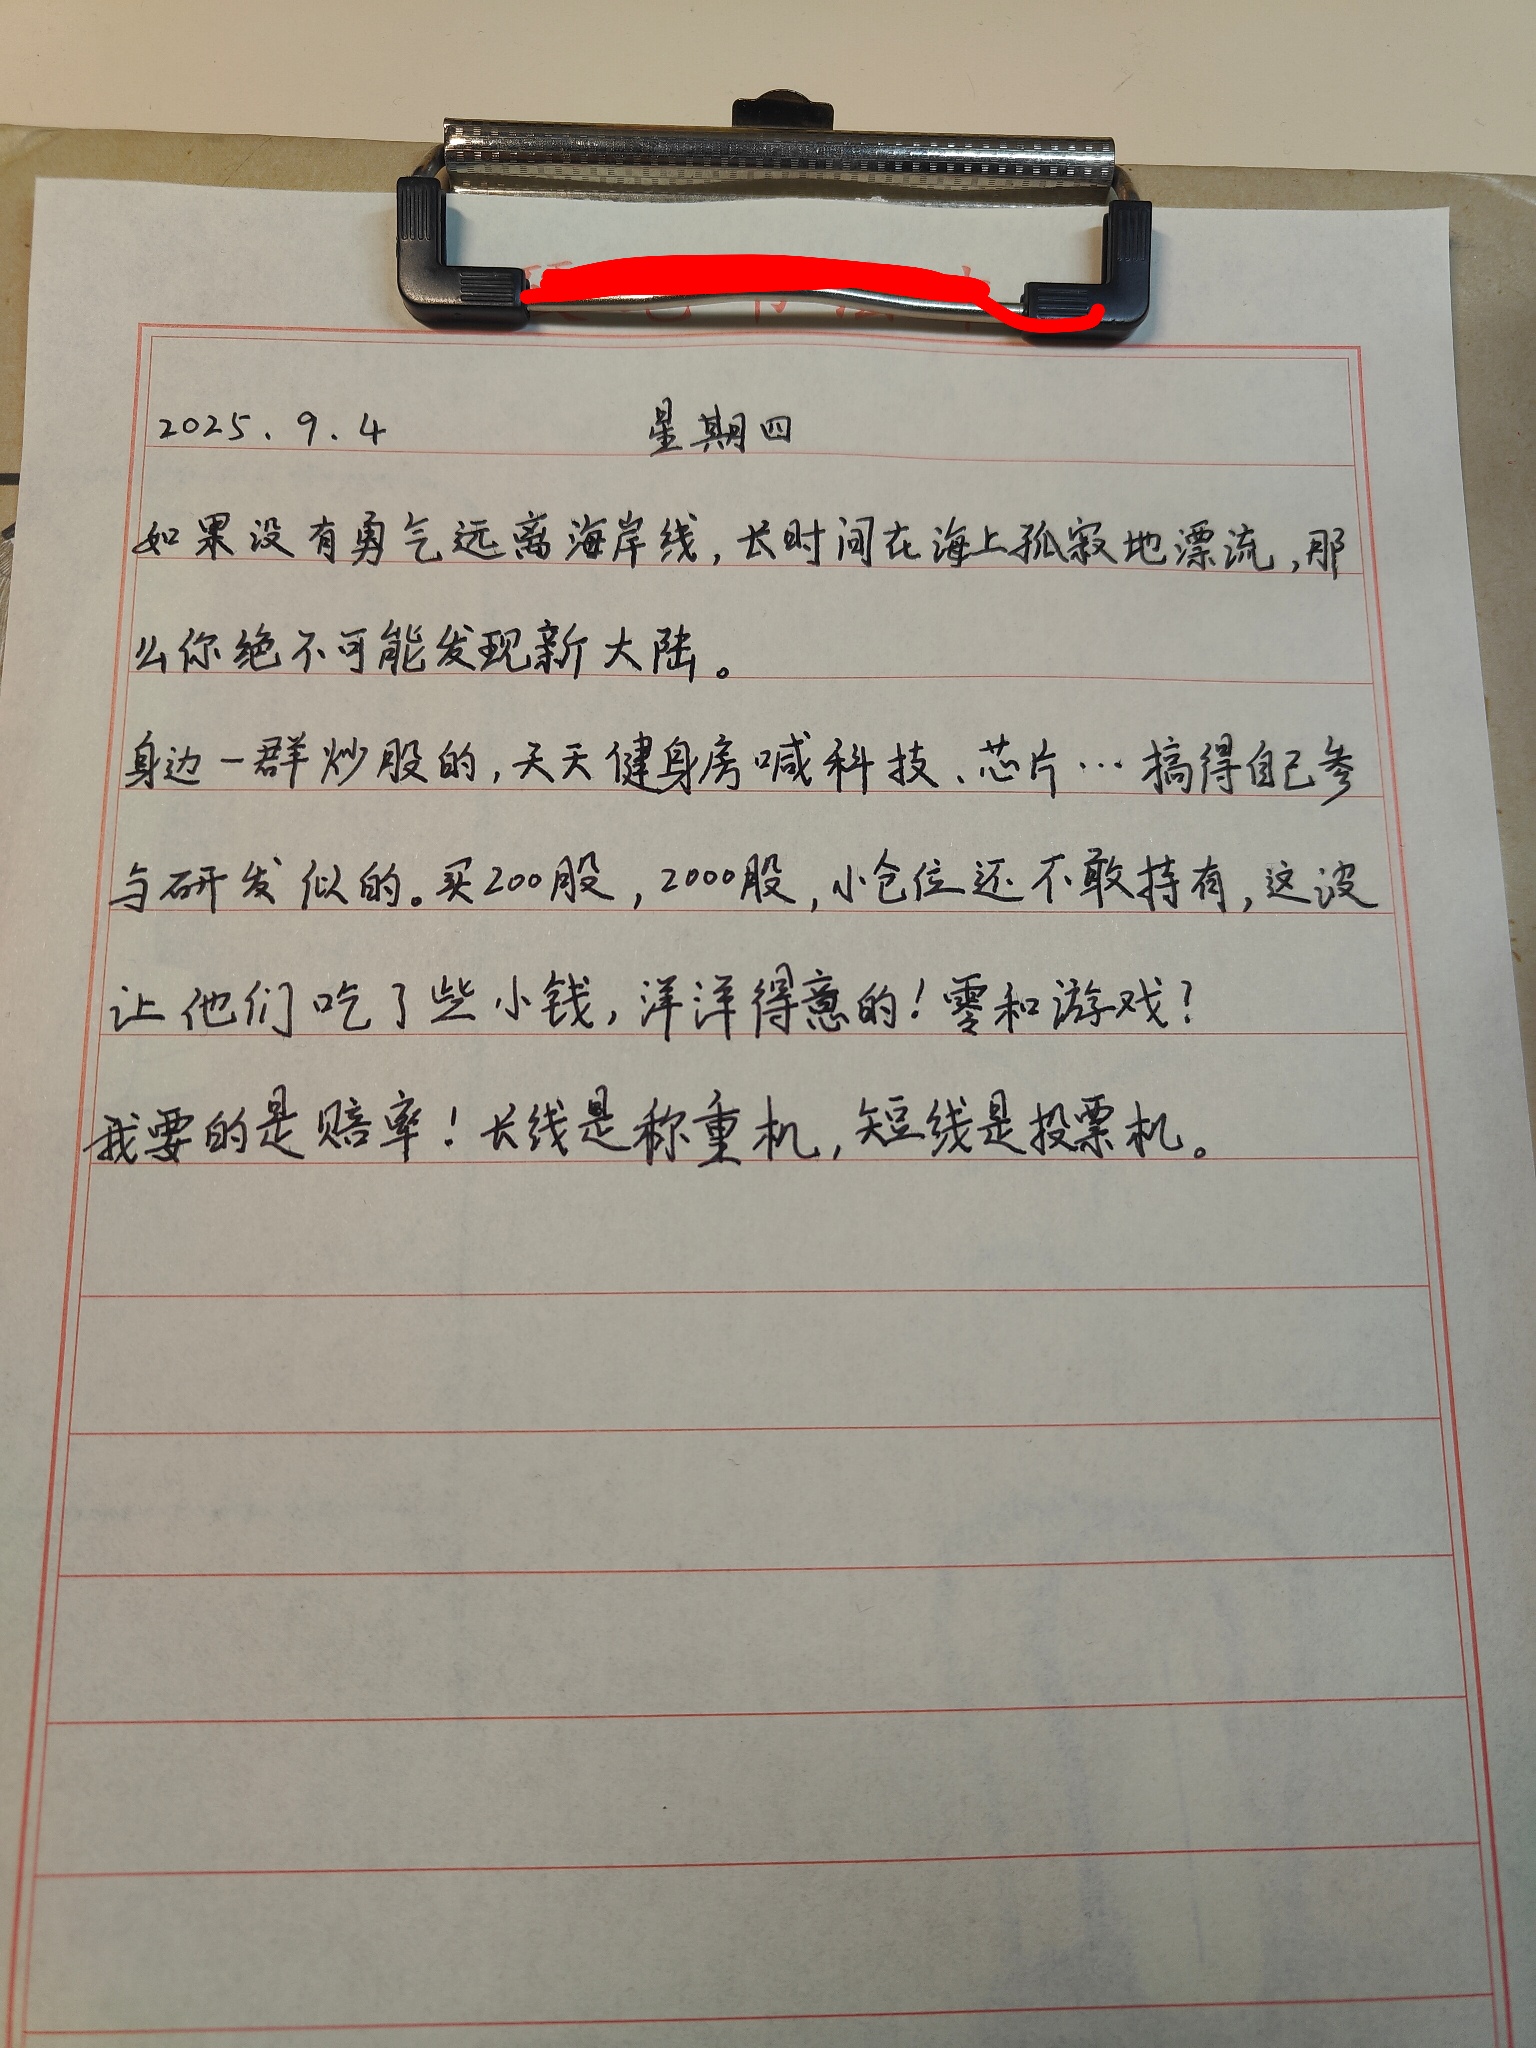 2025.9.4 星期四
如果没有勇气远离海岸线,长时间在海上孤寂地漂流,那
么你绝不可能发现新大陆。
身边一群炒股的,天天健身房喊科技、芯片…搞得自己参
与研发似的。买200股,2000股,小仓位还不敢持有,这波
让他们吃了些小钱,洋洋得意的!零和游戏?
我要的是赔率!长线是称重机,短线是投票机。